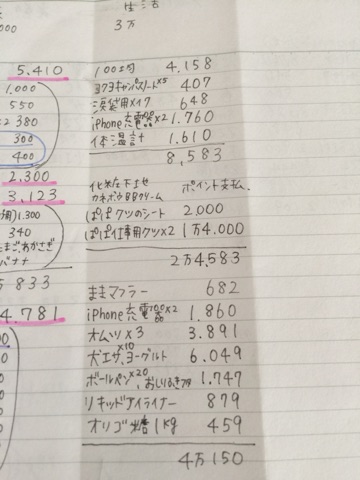 000
5.410
1.000
550
2 380
300
400
2.300
3.123
用)1.300
340
まご,わかさぎ
バナナ
833
4.781
生活
3万
100均 4.158
コクヨキャンパスノート×5 407
涙袋用メイク 648
iPhone充電器×2 1.760
体温計 1.610
8,583
化粧下地
カネボウBBクリーム ポイント支払.
ぱぱクツのシート 2,000
ぱぱ仕事用クツ×2 1万4.000
2万4,583
ままマフラー 682
iPhone充電器×2 1.860
オムツ×3 3.891
犬エサ×10,ヨーグルト 6.049
ボールペン×20,おしりふき 1.747
リキッドアイライナー 879
オリゴ糖1kg 459
4万150